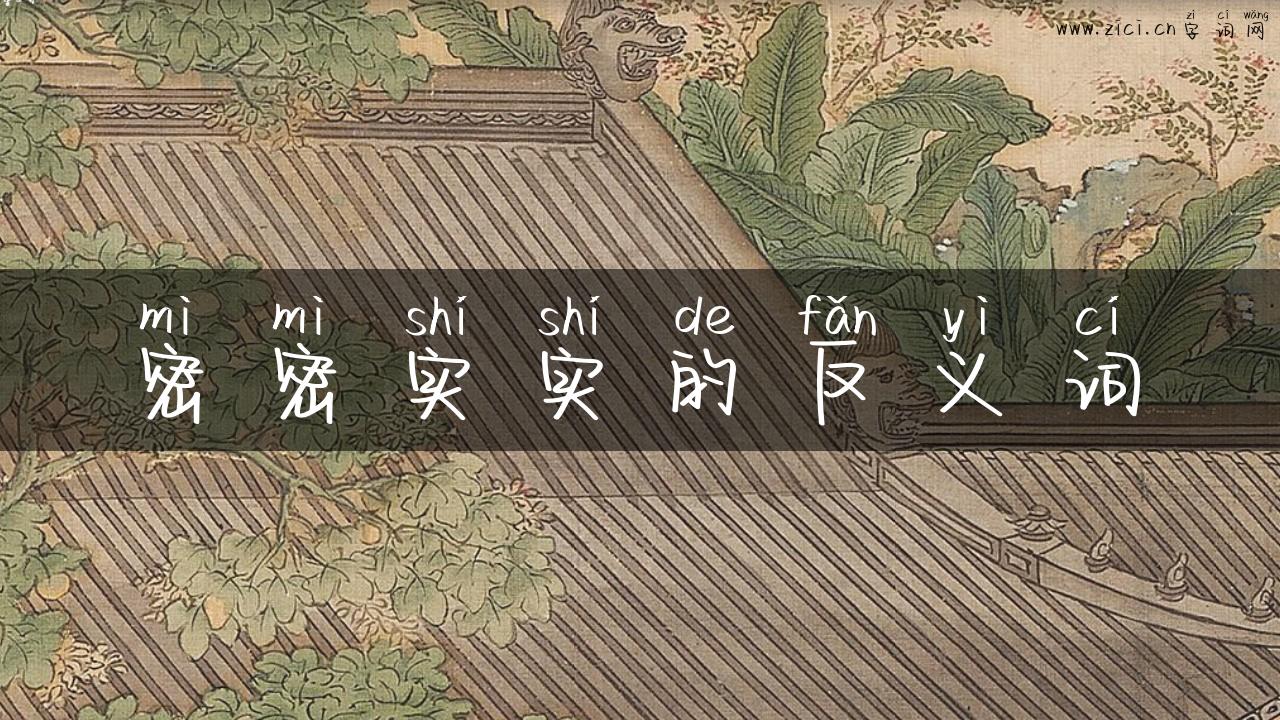 zì cí wǎng
www.zici.cn 字 词 网
mì mì shí shí de fǎn yì cí
密 密 实 实 的 反 义 词